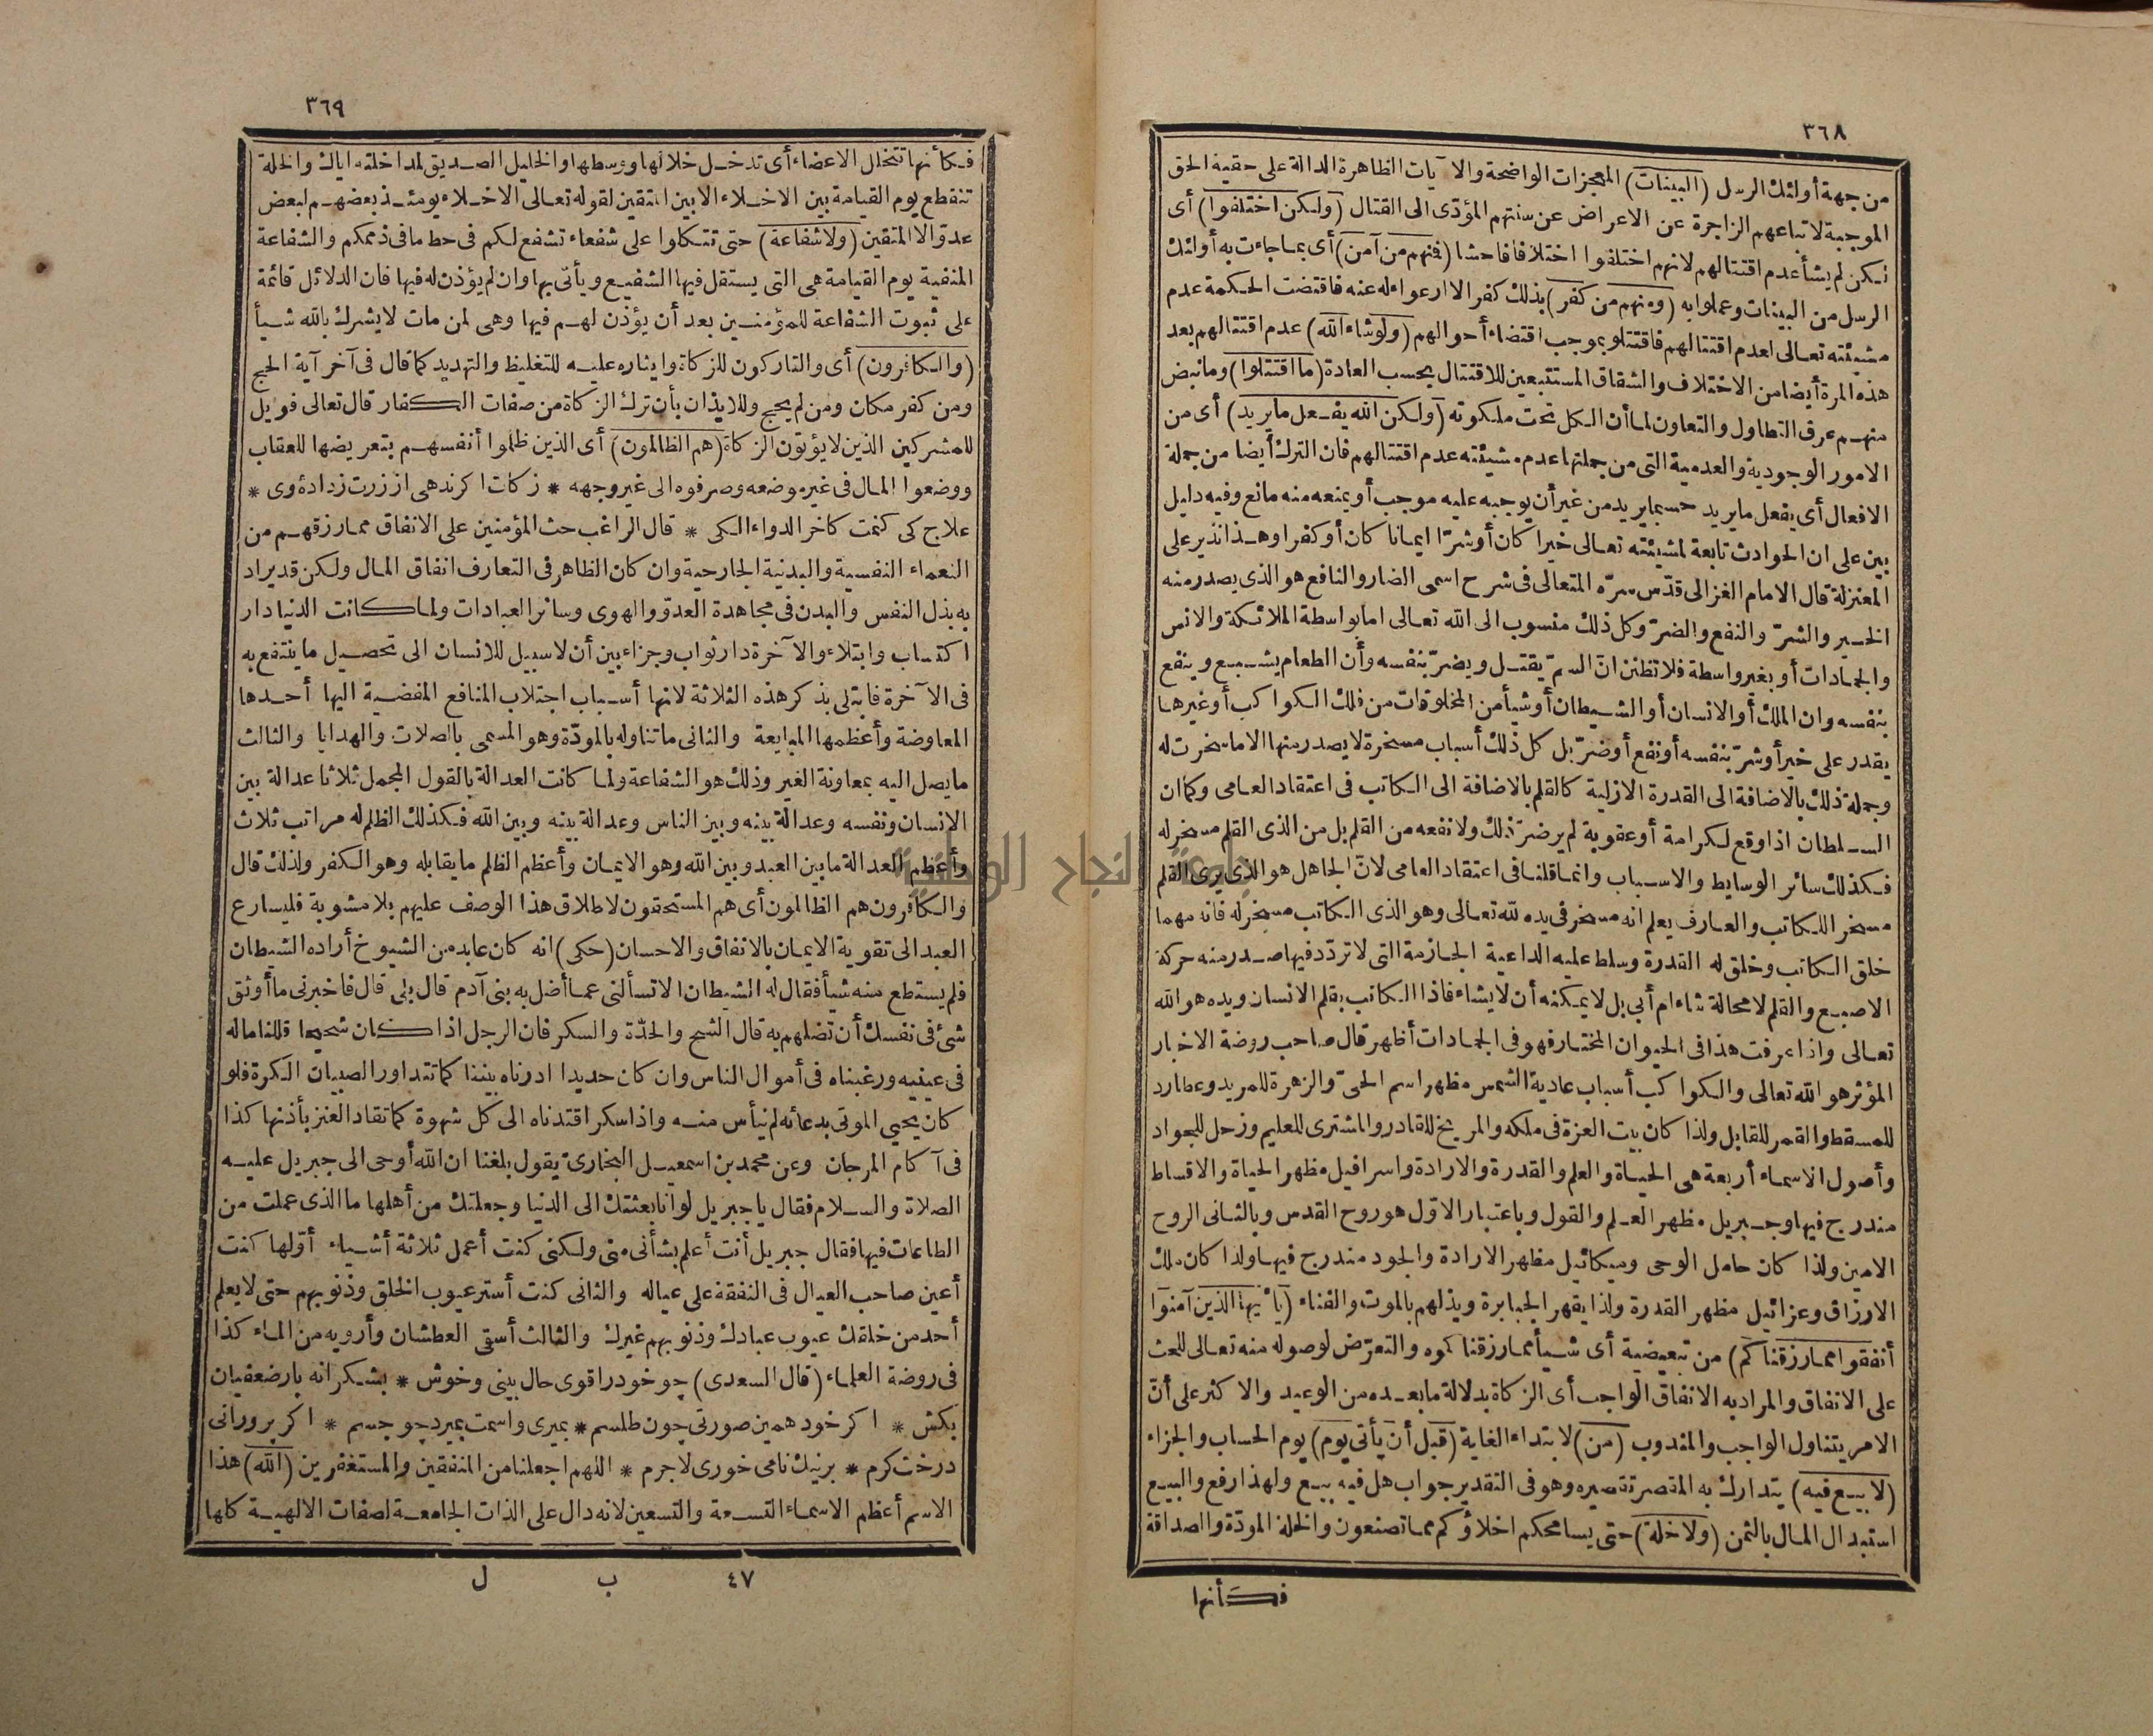 ٣٦٨
من جهة أولئك الرسل (البينات) المعجزات الواضحة والآيات الظاهرة الدالة على حقية الحق
الموجبة لاتباعهم الزاجرة عن الاعراض عن سنتهم المؤدّى الى القتال (ولكن اختلفوا) أى
لكن لم يشأ عدم اقتتالهم لانهم اختلفوا اختلافا فاحشا (فمنهم من آمن) أى بما جاءت به أولئك
الرسل من البينات وعملوا به (ومنهم من كفر) بذلك كفرا لا ارعواء له عنه فاقتضت الحكمة عدم
مشيئته تعالى لعدم اقتتالهم فاقتتلو بموجب اقتضاء أحوالهم (ولو شاء الله) عدم اقتتالهم بعد
هذه المرة أيضا من الاختلاف والشقاق المستتبعين للاقتتال بحسب العادة (ما اقتتلوا) وما نبض
منهم عرق التطاول والتعاون لما أن الكل تحت ملكوته (ولكن الله يفعل ما يريد) أى من
الامور الوجودية والعدمية التى من جملتها عدم مشيئته عدم اقتتالهم فان الترك أيضا من جملة
الافعال أى يفعل ما يريد حسبما يريد من غير أن يوجبه عليه موجب أو يمنعه منه مانع وفيه دليل
بين على ان الحوادث تابعة لمشيئته تعالى خيرا كان أو شرّا ايمانا كان أو كفرا وهذا نذير على
المعتزلة قال الامام الغزالى قدّس سرّه المتعالى فى شرح اسمى الضار والنافع هو الذى يصدر منه
الخير والشرّ والنفع والضرّ وكل ذلك منسوب الى الله تعالى اما بواسطة الملائكة والانس
والجمادات أو بغير واسطة فلا تظنن انّ السمّ يقتل ويضرّ بنفسه وأن الطعام يشبع وينفع
بنفسه وان الملك أو الانسان أو الشيطان أو شيأ من المخلوقات من فلك الكواكب أو غيرها
يقدر على خير أو شرّ بنفسه أو نفع أو ضرّ بل كل ذلك أسباب مسخرة لا يصدر منها الا ما سخرت له
وجملة ذلك بالاضافة الى القدرة الازلية كالقلم بالاضافة الى الكاتب فى اعتقاد العامى وكما ان
السلطان اذا وقع لكرامة أو عقوبة لم ير ضرّ ذلك ولا نفعه من القلم بل من الذى القلم مسخر له
فكذلك سائر الوسايط والاسباب وانما قلنا فى اعتقاد العامى لانّ الجاهل هو الذى يرى القلم
مسخرا للكاتب والعارف يعلم انه مسخر فى يده لله تعالى وهو الذى الكاتب مسخر له فانه مهما
خلق الكاتب وخلق له القدرة وسلط عليه الداعية الجازمة التى لا تردّد فيها صدر منه حركة
الاصبع والقلم لا محالة شاء ام أبى بل لا يمكنه أن لا يشاء فاذا الكاتب بقلم الانسان ويده هو الله
تعالى واذا عرفت هذا فى الحيوان المختار فهو فى الجمادات أظهر قال صاحب روضة الاخبار
المؤثر هو الله تعالى والكواكب أسباب عادية الشمس مظهر اسم الحىّ والزهرة للمريد وعطارد
للمسقط والقمر للقابل ولذا كان بيت العزة فى ملكه والمريخ للقادر والمشترى للعليم وزحل للجواد
وأصول الاسماء أربعة هى الحياة والعلم والقدرة والارادة واسرافيل مظهر الحياة والاقساط
مندرج فيها وجبريل مظهر العلم والقول وباعتبار الاوّل هو روح القدس وبالثانى الروح
الامين ولذا كان حامل الوحى وميكائيل مظهر الارادة والجود مندرج فيها ولذا كان ملك
الارزاق وعزرائيل مظهر القدرة ولذا يقهر الجبابرة ويذلهم بالموت والفناء (يا أيها الذين آمنوا
أنفقوا مما رزقناكم) من تبعيضية أى شيأ مما رزقناكموه والتعرّض لوصوله منه تعالى للحث
على الانفاق والمراد به الانفاق الواجب أى الزكاة بدلالة ما بعده من الوعيد والاكثر على أنّ
الامر يتناول الواجب والمندوب (من) لابتداء الغاية (قبل أن يأتى يوم) يوم الحساب والجزاء
(لا بيع فيه) يتدارك به المقصر تقصيره وهو فى التقدير جواب هل فيه بيع ولهذا رفع والبيع
استبدال المال بالثمن (ولا خلة) حتى يسامحكم اخلاؤكم مما تصنعون والخلة المودّة والصداقة
فكأنها
٣٦٩
فكأنها تتخلل الاعضاء أى تدخل خلالها ووسطها والخليل الصديق لمداخلته اياك والخلة
تنقطع يوم القيامة بين الاخلاء الا بين المتقين لقوله تعالى الاخلاء يومئذ بعضهم لبعض
عدوّ الا المتقين (ولا شفاعة) حتى تتكلوا على شفعاء تشفع لكم فى حط ما فى ذممكم والشفاعة
المنفية يوم القيامة هى التى يستقل فيها الشفيع ويأتى بها وان لم يؤذن له فيها فان الدلائل قائمة
على ثبوت الشفاعة للمؤمنين بعد أن يؤذن لهم فيها وهى لمن مات لا يشرك بالله شيأ
(والكافرون) أى والتاركون للزكاة وايثاره عليه للتغليظ والتهديد كما قال فى آخر آية الحج
ومن كفر مكان ومن لم يحج وللايذان بأن ترك الزكاة من صفات الكفار قال تعالى فويل
للمشركين الذين لا يؤتون الزكاة (هم الظالمون) أى الذين ظلموا أنفسهم بتعريضها للعقاب
ووضعوا المال فى غير موضعه وصرفوه الى غير وجهه * زكات اكر ندهى از زرت زدادهٔ وى *
علاج كى كنمت كاخر الدواء الكى * قال الراغب حث المؤمنين على الانفاق مما رزقهم من
النعماء النفسية والبدنية الجارحية وان كان الظاهر فى التعارف انفاق المال ولكن قد يراد
به بذل النفس والبدن فى مجاهدة العدوّ والهوى وسائر العبادات ولما كانت الدنيا دار
اكتساب وابتلاء والآخرة دار ثواب وجزاء بين أن لا سبيل للانسان الى تحصيل ما ينتفع به
فى الآخرة فابتلى بذكر هذه الثلاثة لانها أسباب اجتلاب المنافع المفضية اليها أحدها
المعاوضة وأعظمها المبايعة والثانى ما تناوله بالمودّة وهو المسمى بالصلات والهدايا والثالث
ما يصل اليه بمعاونة الغير وذلك هو الشفاعة ولما كانت العدالة بالقول المجمل ثلاثا عدالة بين
الانسان ونفسه وعدالة بينه وبين الناس وعدالة بينه وبين الله فكذلك الظلم له مراتب ثلاث
وأعظم العدالة ما بين العبد وبين الله وهو الايمان وأعظم الظلم ما يقابله وهو الكفر ولذلك قال
والكافرون هم الظالمون أى هم المستحقون لاطلاق هذا الوصف عليهم بلا مشوبة فليسارع
العبد الى تقوية الايمان بالانفاق والاحسان (حكى) انه كان عابد من الشيوخ أراده الشيطان
فلم يستطع منه شيأ فقال له الشيطان الا تسألنى عما أضل به بنى آدم قال بلى قال فاخبرنى ما أوثق
شئ فى نفسك أن تضلهم به قال الشح والحدّة والسكر فان الرجل اذا كان شحيحا قللنا ماله
فى عينيه ورغبناه فى أموال الناس وان كان حديدا ادرناه بيننا كما تتداور الصبيان الكرة فلو
كان يحيي الموتى بدعائه لم نيأس منه واذا سكر اقتدناه الى كل شهوة كما تقاد العنز بأذنها كذا
فى آكام المرجان وعن محمد بن اسمعيل البخارىّ يقول بلغنا ان الله أوحى الى جبريل عليه
الصلاة والسلام فقال يا جبريل لو انا بعثتك الى الدنيا وجعلتك من أهلها ما الذى عملت من
الطاعات فيها فقال جبريل أنت أعلم بشأنى منى ولكنى كنت أعمل ثلاثة أشياء أوّلها كنت
أعين صاحب العيال فى النفقة على عياله والثانى كنت أستر عيوب الخلق وذنوبهم حتى لا يعلم
أحد من خلقك عيوب عبادك وذنوبهم غيرك والثالث أسقى العطشان وأرويه من الماء كذا
فى روضة العلماء (قال السعدى) چو خود را قوى حال بينى وخوش * بشكرانه بار ضعفيان
بكش * اكر خود همين صورتى چون طلسم * بميرى واسمت بميرد چو جسم * اكر برورانى
درخت كرم * بر نيك نامى خورى لاجرم * اللهم اجعلنا من المنفقين والمستغفرين (الله) هذا
الاسم أعظم الاسماء التسعة والتسعين لانه دال على الذات الجامعة لصفات الالهية كلها
٤٧ ب ل
جامعة النجاح الوطنية